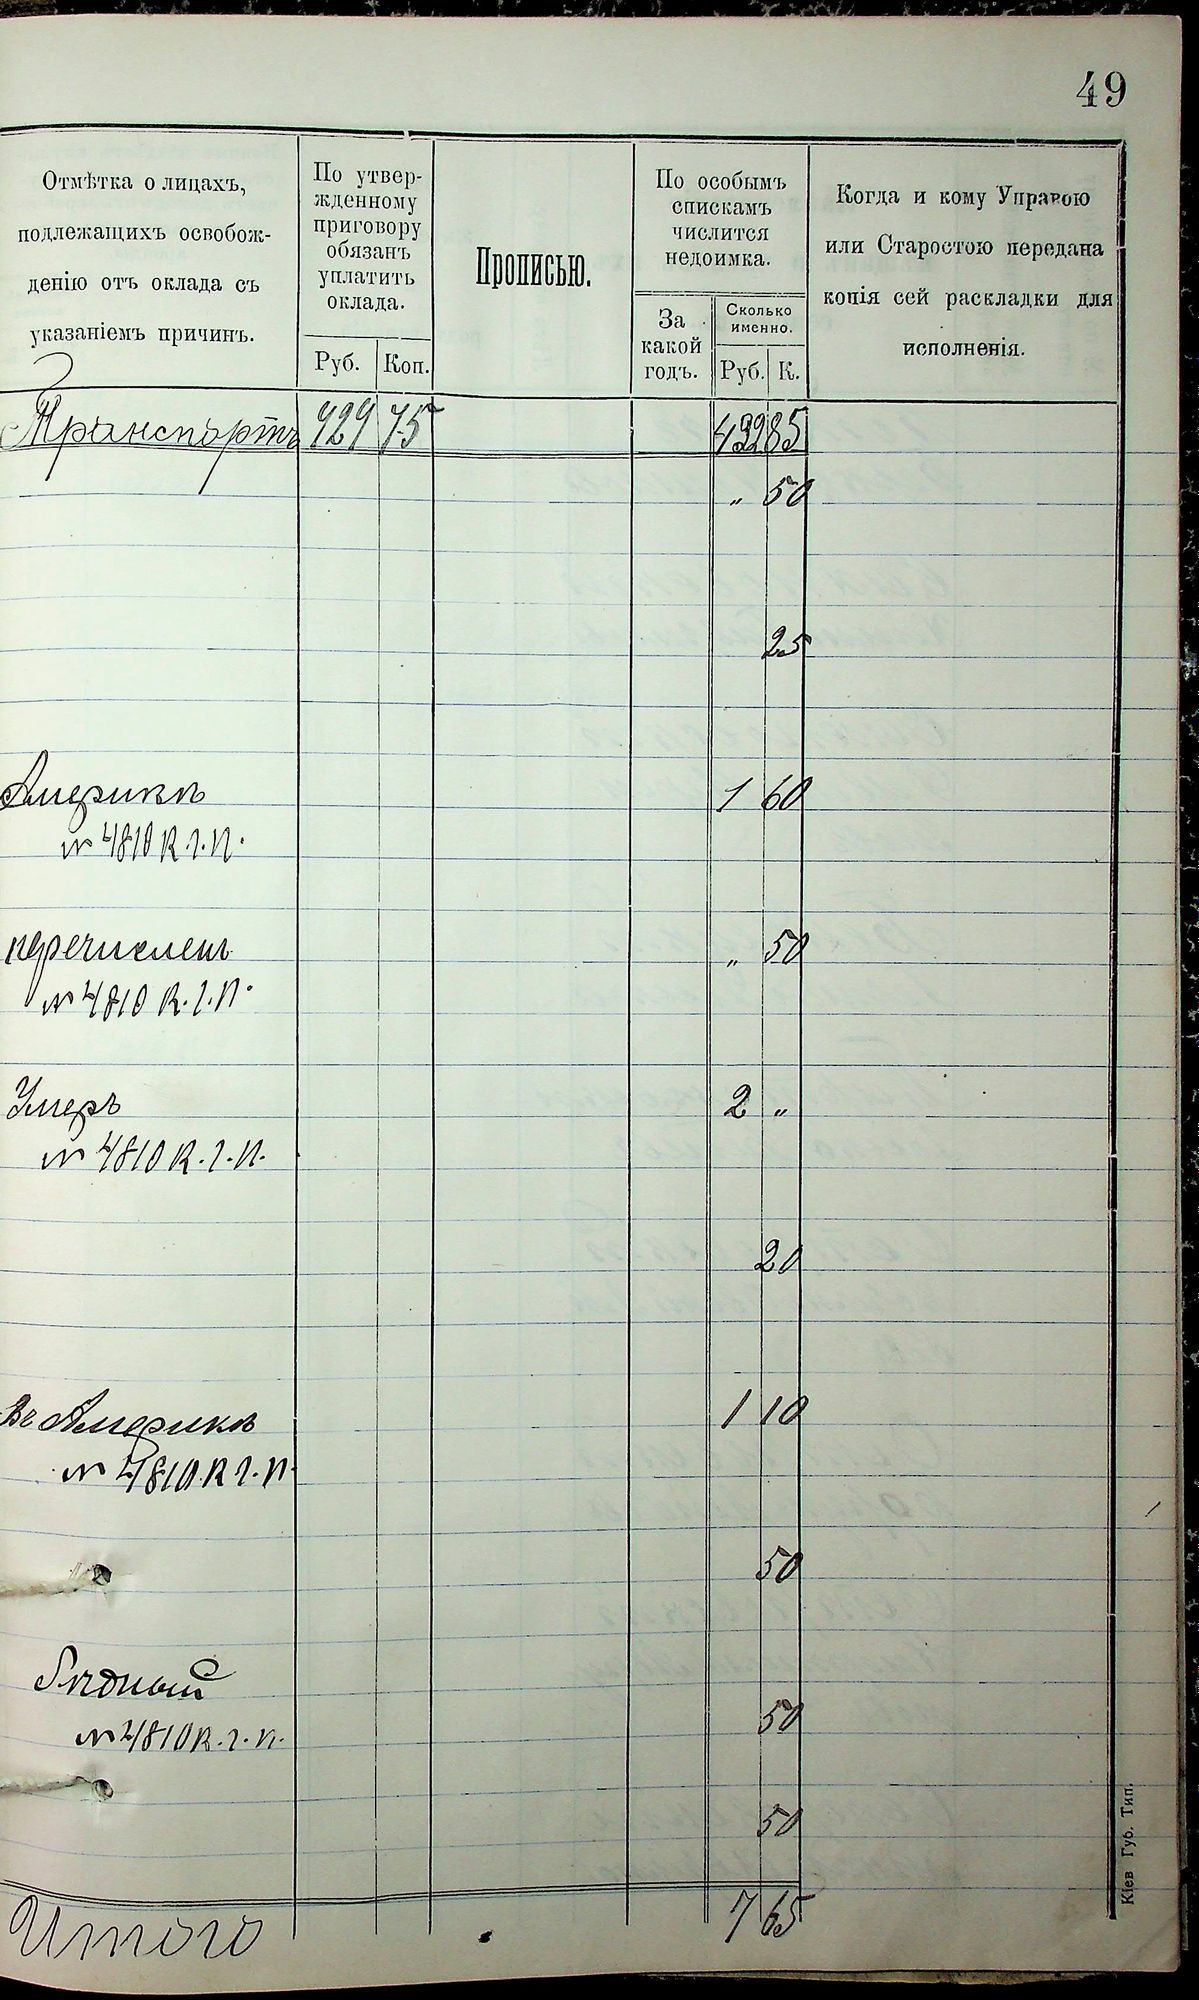 49
Отмѣтка о лицахъ,
подлежащихъ освобож-
денію отъ оклада съ
указаніемъ причинъ.
По утвер-
жденному
приговору
обязанъ
уплатить
оклада.
Руб. Коп.
Прописью.
По особымъ
спискамъ
числится
недоимка.
За
какой
годъ.
Сколько
именно.
Руб. К.
Когда и кому Управою
или Старостою передана
копія сей раскладки для
исполненія.
Транспортъ 429 75 85
„ 50
25
Америкѣ 1 60
№ 4810 К.г.п.
перечисленъ „ 50
№ 4810 К.г.п.
Умеръ 2 „
№ 4810 К.г.п.
20
Въ Америкѣ 1 10
№ 4810 К г.п.
50
Бѣдный
№ 4810 К.г.п. 50
50
Итого 7 65
Кіев Губ. Тип.